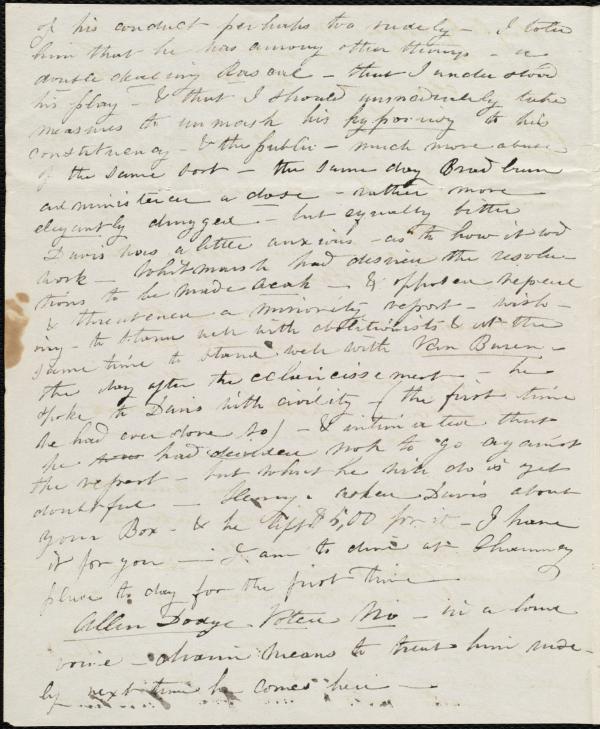 of his conduct perhaps too rudely – I told
him that he was among other things – a
double dealing Rascal – that I understood
his play – & that I should immediately take
measures to unmask his hypocrisy to his
constituency – & the public – much more abuse
of the same sort – the same day Bradburn
administered a dose – rather more
elegantly drugged – but equally bitter
Davis was a little anxious – as to how it wd
work – Whitmarsh had desired the resolu
tions to be made weak – & opposed repeal
& threatened a minority report – wish-
ing – to stand well with abolitionists & at the
same time to stand well with Van Buren –
the day after the eclaircissement – he
spoke to Davis with civility – (the first time
he had ever done so) – & intimated that
he had decided not to go against
the report – but what he will do is yet
doubtful – Henry asked Davis about
your Box – & he left $5,00 for it – I have
it for you – I am to dine at Chauncy
place to day for the first time –
Allen Dodge Voted No – in a loud
voice – means to treat him rude-
ly next time he comes here –